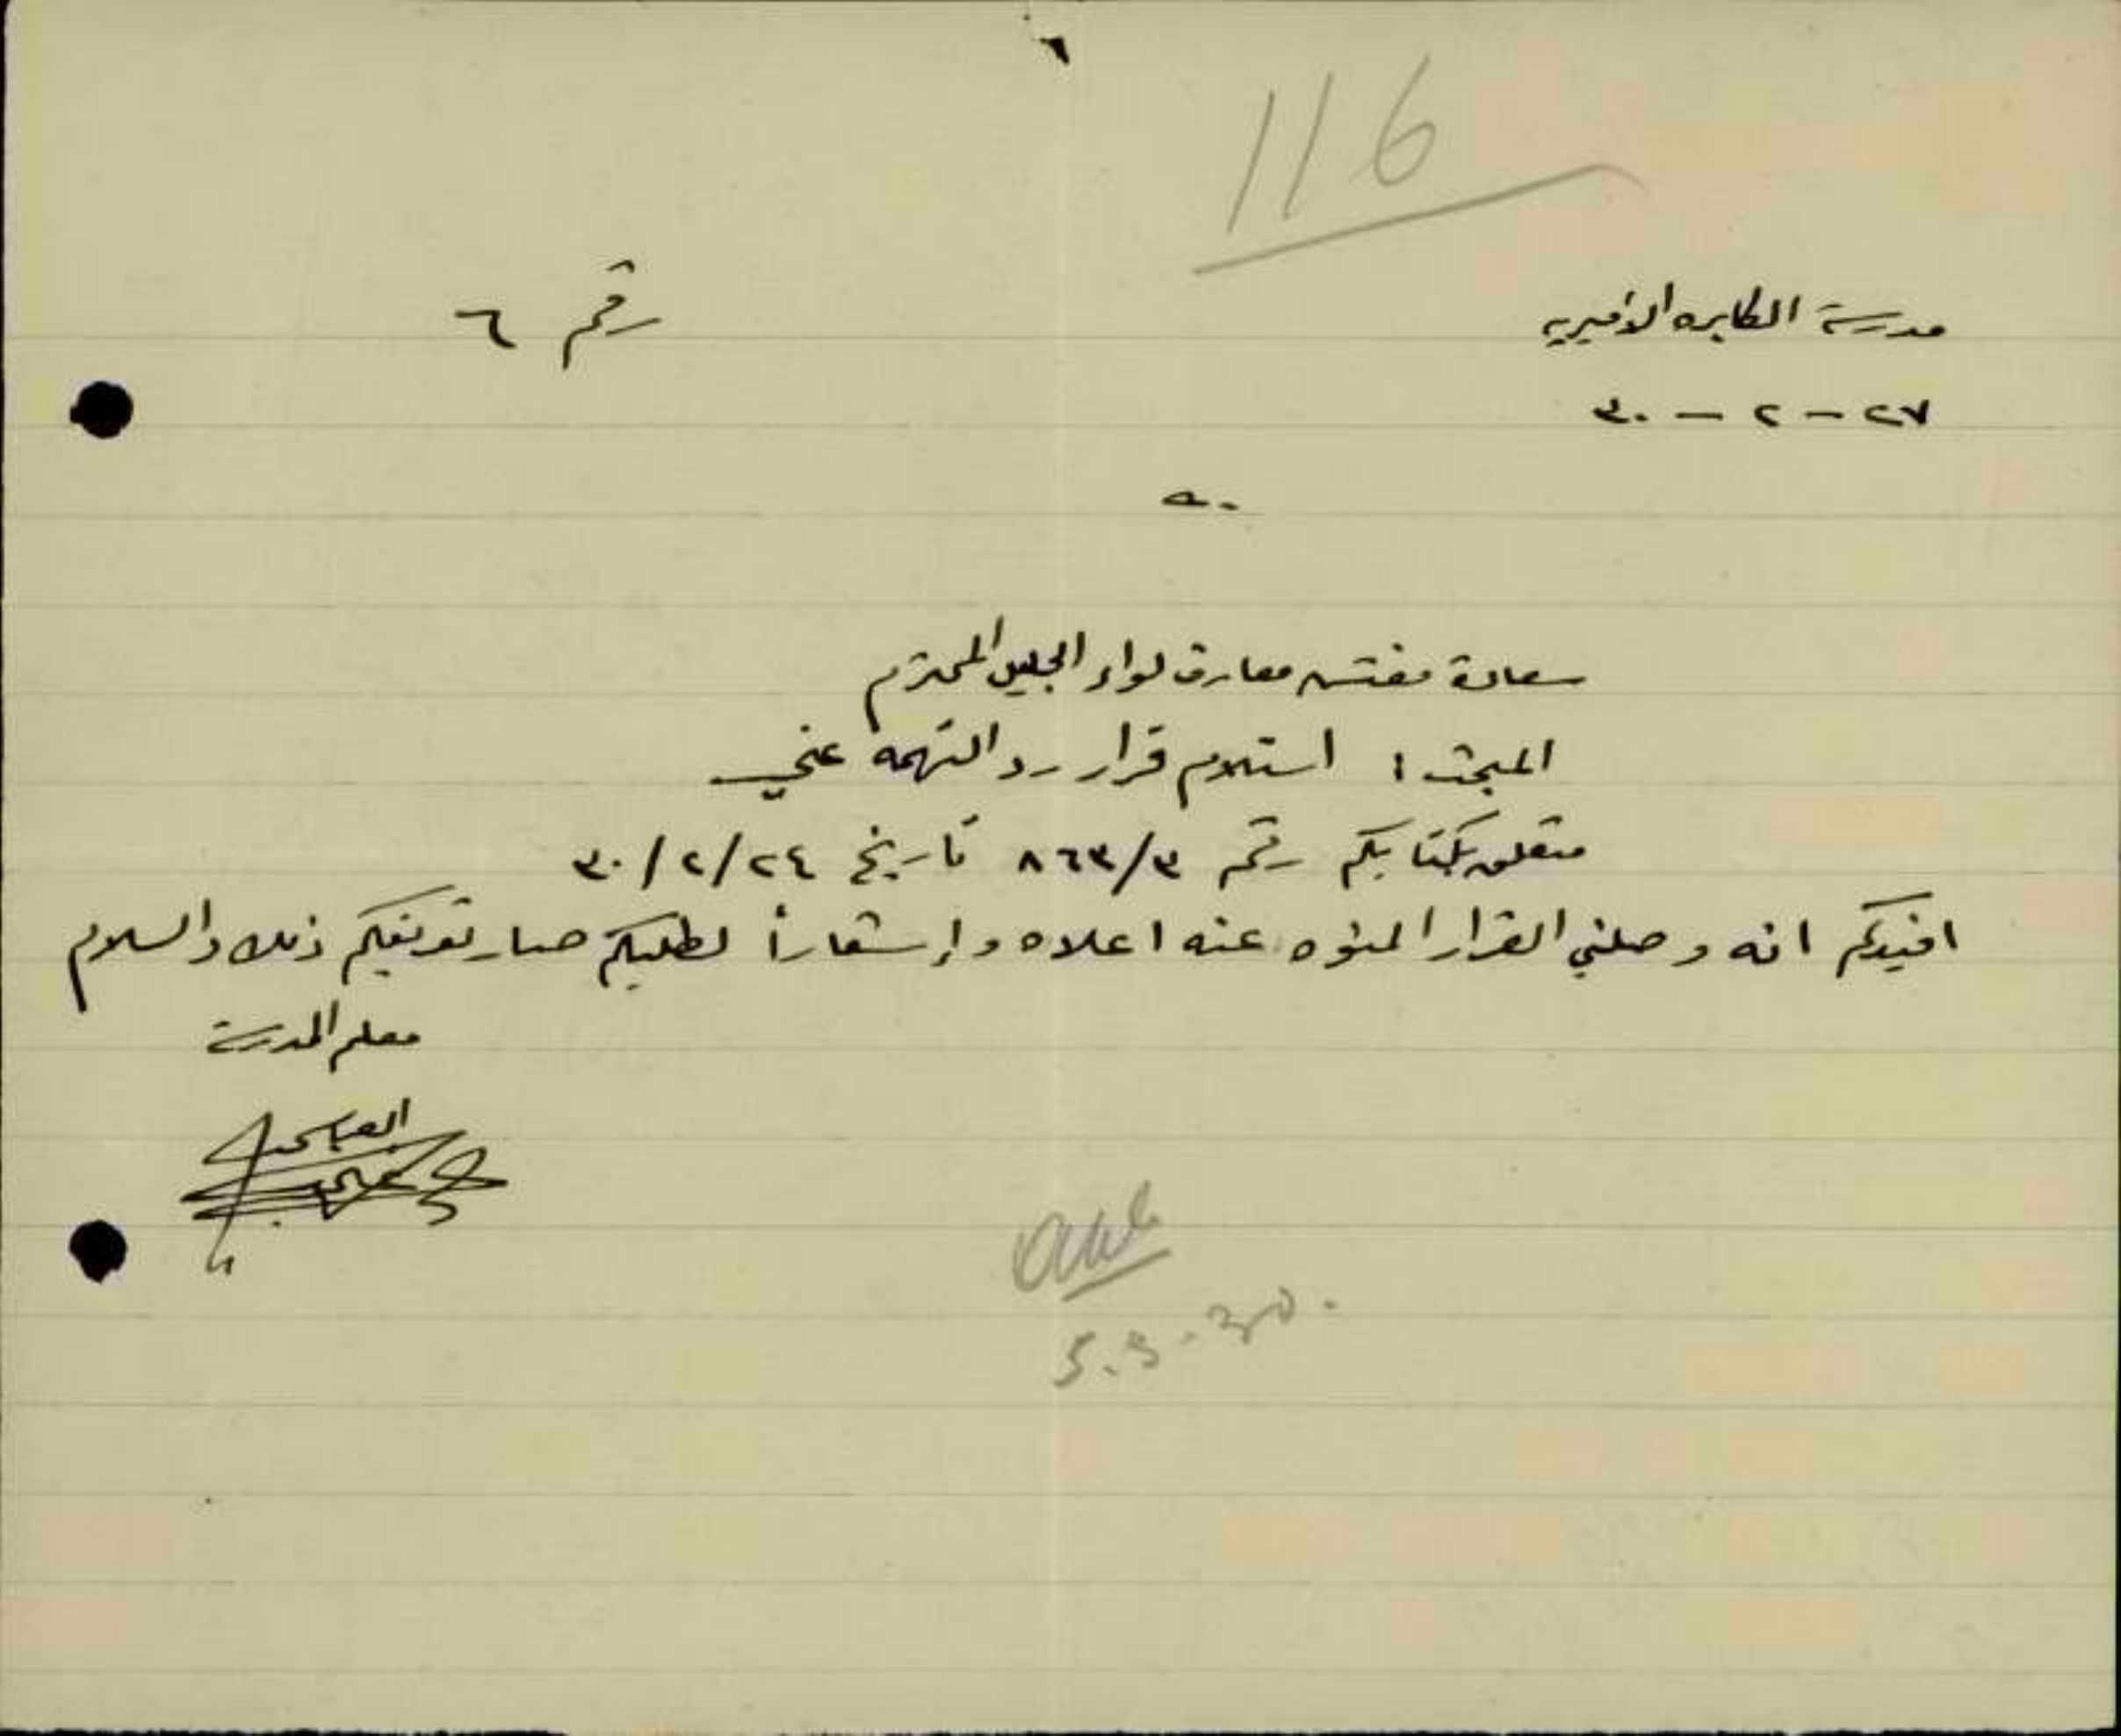 116
مدرسة الكابره الاميريه
رقم ٦
٢٧ - ٢ - ٣٠
سعادة مفتش معارف لواء الجليل المحترم
المبحث : استلام قرار رد التهمه عني
متعلق بكتابكم رقم ٨٦٣/٣ تاريخ ٣٠/٢/٢٤
افيدكم انه وصلني القرار المنوه عنه اعلاه وإشعاراً لطلبكم صار تعريفكم ذلك والسلام
معلم المدرسة
5.3.30.